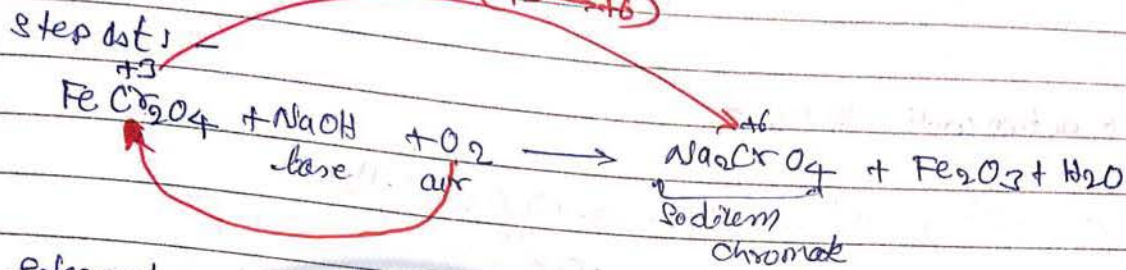 +6
Step 1st :-
+3 +6
FeCr2O4 + NaOH + O2 → Na2CrO4 + Fe2O3 + H2O
base air
Sodium
Chromate